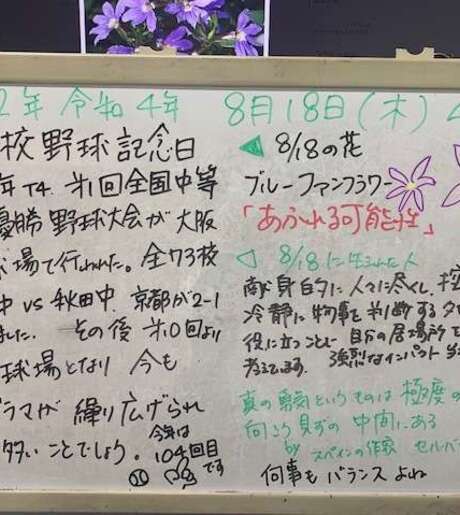 2年 令和4年 8月18日(木)
校野球記念日
年T4. 第1回全国中等
優勝野球大会が大阪
球場で行われた。全73校
中 vs 秋田中. 京都が2-1
ました. その後 第10回より
球場となり 今も
ラマが 繰り広げられ
多いことでしょう。
今年は
104回目
です
8/18の花
ブルーファンフラワー
「あふれる可能性」
8/18に生まれた人
献身的に人々に尽くし、極
冷静に物事を判断するタ
役に立つことで 自分の居場所を
考えています. 強烈なインパクト
真の勇気というものは 極度の
向こう見ずの 中間にある
by スペインの作家 セルバ
何事もバランスよね